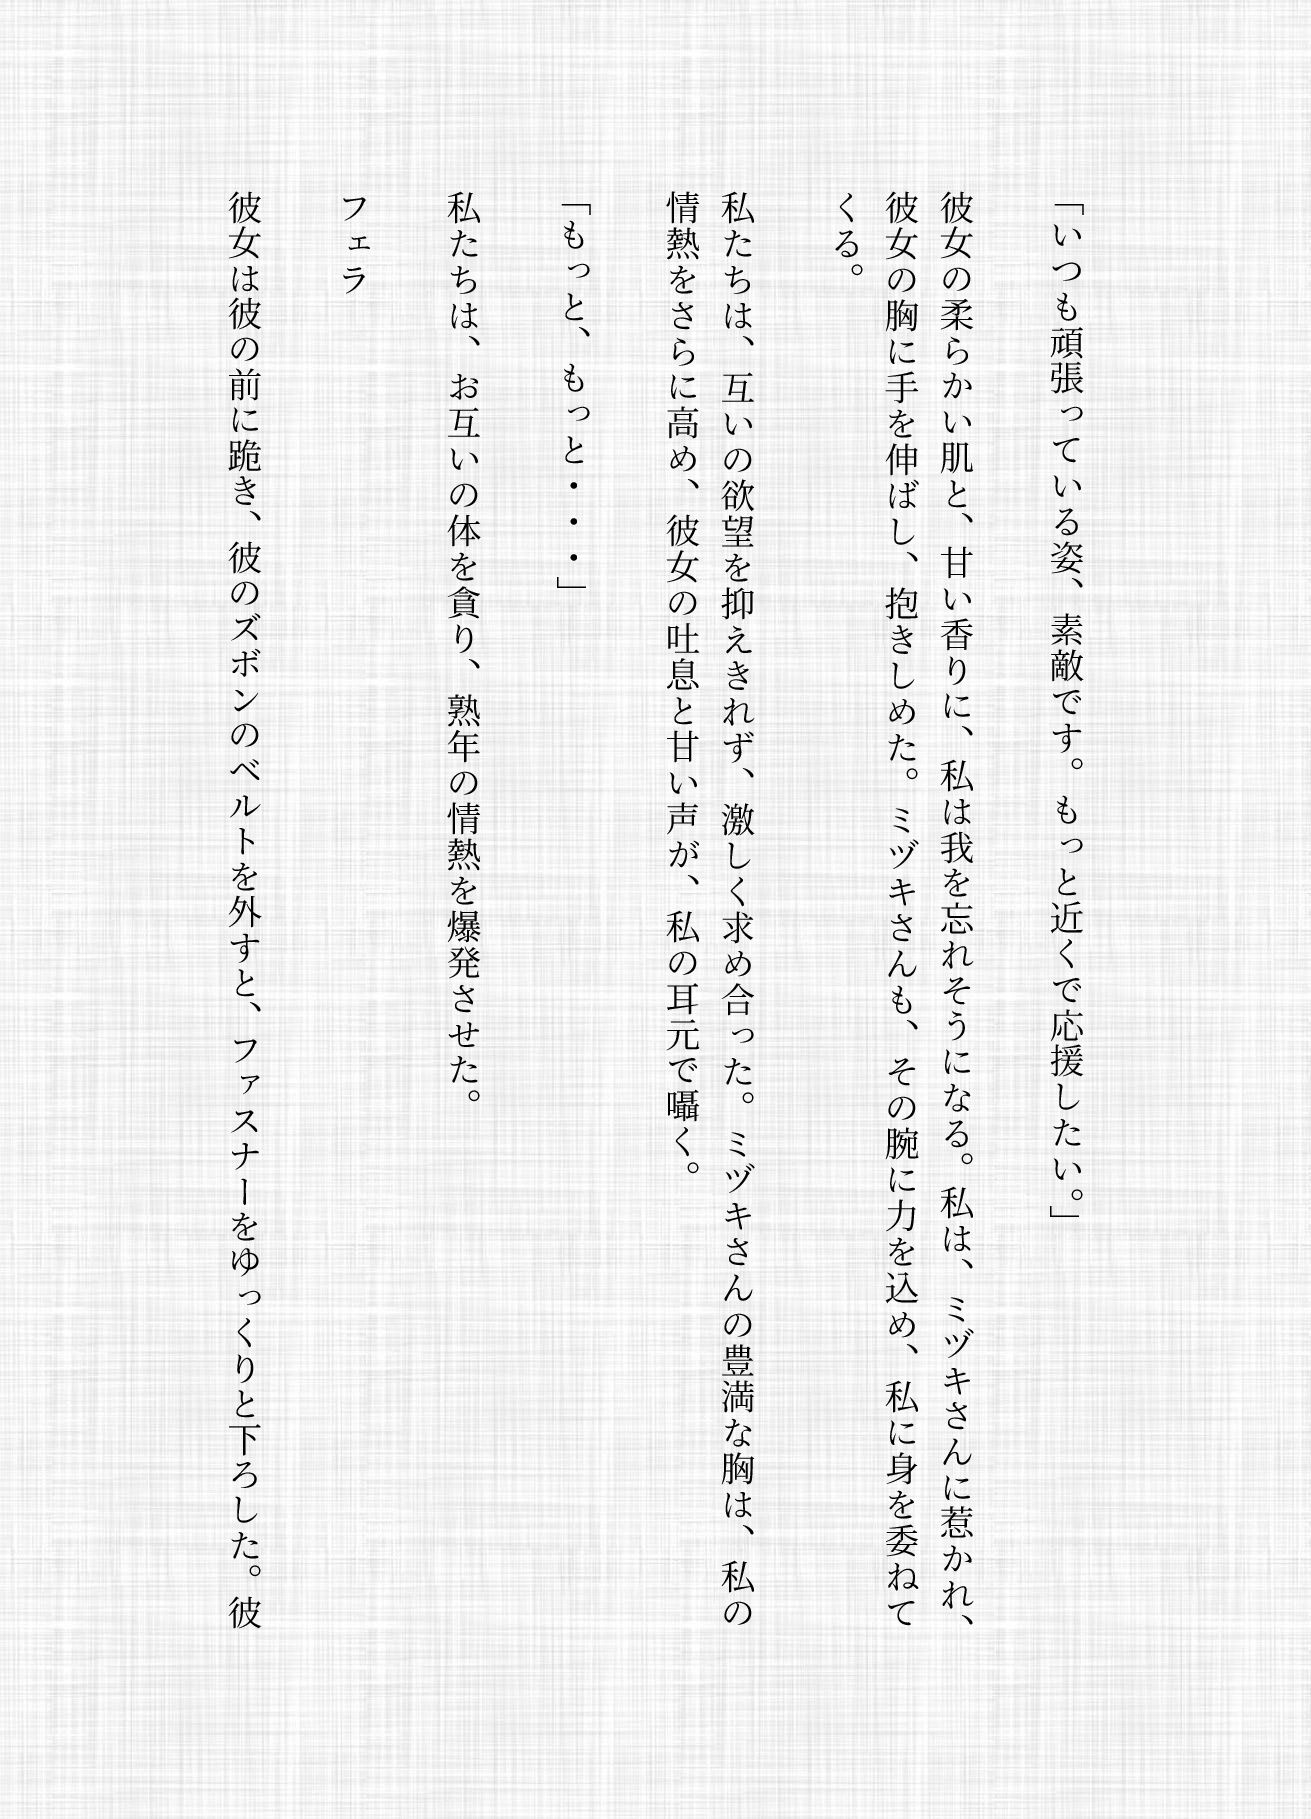 「いつも頑張っている姿、素敵です。もっと近くで応援したい。」
彼女の柔らかい肌と、甘い香りに、私は我を忘れそうになる。私は、ミヅキさんに惹かれ、
彼女の胸に手を伸ばし、抱きしめた。ミヅキさんも、その腕に力を込め、私に身を委ねて
くる。
私たちは、互いの欲望を抑えきれず、激しく求め合った。ミヅキさんの豊満な胸は、私の
情熱をさらに高め、彼女の吐息と甘い声が、私の耳元で囁く。
「もっと、もっと・・・」
私たちは、お互いの体を貪り、熟年の情熱を爆発させた。
フェラ
彼女は彼の前に跪き、彼のズボンのベルトを外すと、ファスナーをゆっくりと下ろした。彼